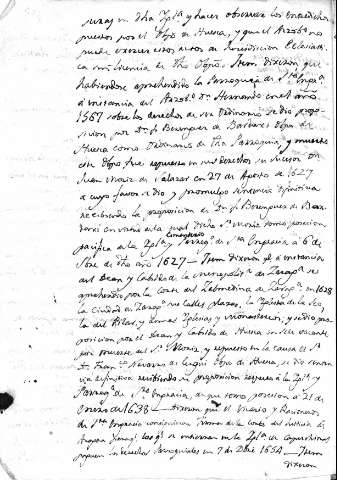 en dha Igla y hacer observar los entredichos
puestos por el Obpo de Huesca, y que el Arzobpo no
puede exercer estos actos de Jurisdicion Eclesiasti
ca sin licencia de dho Obpo. Item dixeron que
habiendose aprehendido la Parroquia de Sta Engra
á instancia del Arzobo Dn Hernando en el año
1567 sobre los derechos de ser Ordinario se dio propo
sicion, por Dn Berenguer de Bardaxi Obpo de
Huesca como Ordinario de dha Parroquia, y muerto
este Obpo fue repuesto en sus derechos su sucesor Dn
Juan Moriz de Salazar en 27 de Agosto de 1627
á cuyo favor se dio y promulgo sentencia difinitiva
recibiendo la proposicion de Dn Berenguer de Bar
daxi en virtud de la qual dicho Sr Moriz tomó posesion
pacifica de la Igla, y Parroqa de Sta Engracia á 6 de
de dho año 1627 — Item dixeron q á instancia
del Dean y Cabildo de la metropolna de Zarago se
aprehendio por la Corte del Zalmedina de Zarago en 1628
la Ciudad de Zarago sus calles, plazas, la Iglesia de la Seo
la del Pilar, y demas Iglesias y monasterios, y se dio pro
posicion por el Dean y Cabildo de Huesca en sede vacante
por muerte del Sr Moriz y repuesto en la causa el Sr
Dn Franco Navarro de Eugui Obpo de Huesca, se dio senten
cia difinitiva recibiendo su proposicion respecto á la Igla y
Parroqa de Sta Engracia, de que tomó posesion á 21 de
Enero de 1638 — dixeron que el Vicario y Racioneros
de Sta Engracia consiguieron firma de la Corte del Justicia de
Aragon para q los q se entierran en la Igla de Capuchinas
paguen los derechos Parroquiales en 7 de Dbre 1654 — Item
dixeron